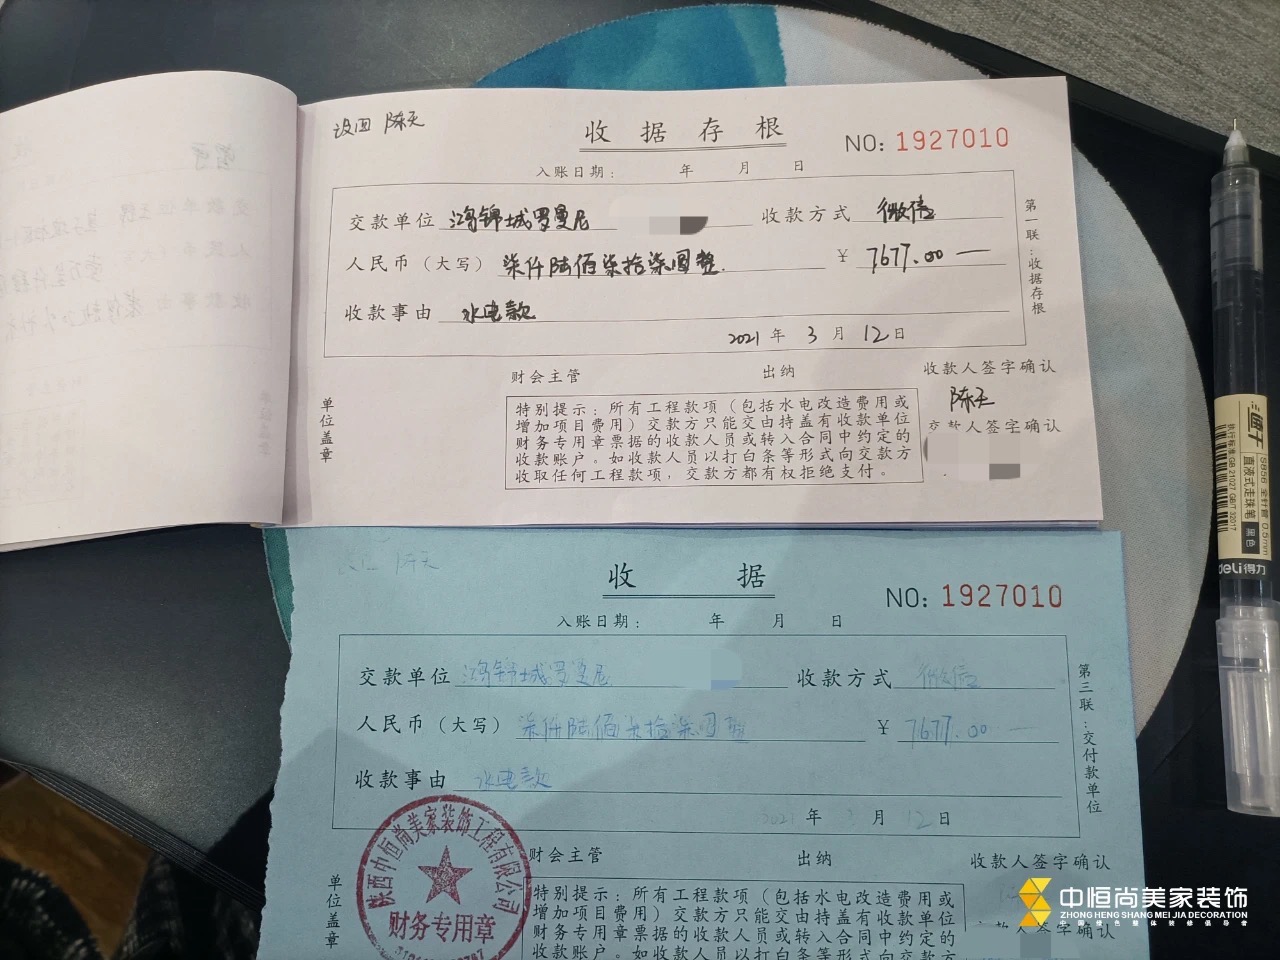 设四 陈天
收据存根
NO: 1927010
入账日期： 年 月 日
交款单位 鸿锦城罗曼尼 收款方式 微信
人民币（大写）柒仟陆佰柒拾柒圆整 ¥ 7677.00
收款事由 水电款
2021年3月12日
第一联：收据存根
财会主管 出纳 收款人签字确认
陈天
交款人签字确认
单位盖章
特别提示：所有工程款项（包括水电改造费用或
增加项目费用）交款方只能交由持盖有收款单位
财务专用章票据的收款人员或转入合同中约定的
收款账户。如收款人员以打白条等形式向交款方
收取任何工程款项，交款方都有权拒绝支付。
陈天
收据
NO: 1927010
入账日期： 年 月 日
交款单位 鸿锦城罗曼尼 收款方式 微信
人民币（大写）柒仟陆佰柒拾柒圆整 ¥ 7677.00
收款事由 水电款
2021年3月12日
第三联：交付款单位
财会主管 出纳 收款人签字确认
单位盖章
特别提示：所有工程款项（包括水电改造费用或
增加项目费用）交款方只能交由持盖有收款单位
财务专用章票据的收款人员或转入合同中约定的
收款账户。如收款人员以打白条等形式向交款方
人签字确认
陕西中恒尚美家装饰工程有限公司
财务专用章
S856 全针管 0.5mm
直液式走珠笔 黑色
执行标准:GB 21027 GB/T 32017
deli得力
中恒尚美家装饰
ZHONG HENG SHANG MEI JIA DECORATION
中国绿色整体装修倡导者